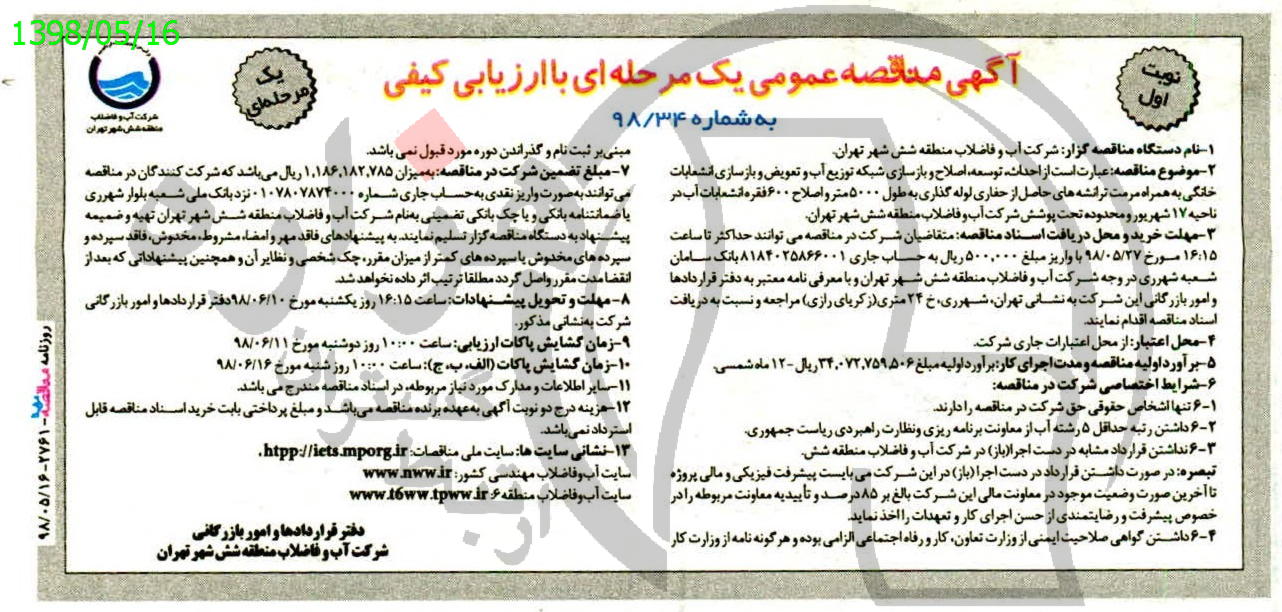 1398/05/16
نوبت
اول
آگهی مناقصه عمومی یک مرحله ای با ارزیابی کیفی
به شماره ۹۸/۳۴
یک
مرحله‌ای
شرکت آب و فاضلاب
منطقه شش شهر تهران
۱-نام دستگاه مناقصه گزار: شرکت آب و فاضلاب منطقه شش شهر تهران.
۲-موضوع مناقصه: عبارت است از احداث، توسعه، اصلاح و بازسازی شبکه توزیع آب و تعویض و بازسازی انشعابات
خانگی به همراه مرمت ترانشه های حاصل از حفاری لوله گذاری به طول ۵۰۰۰ متر و اصلاح ۶۰۰ فقره انشعابات آب در
ناحیه ۱۷ شهریور و محدوده تحت پوشش شرکت آب و فاضلاب منطقه شش شهر تهران.
۳-مهلت خرید و محل دریافت اسناد مناقصه: متقاضیان شرکت در مناقصه می توانند حداکثر تا ساعت
۱۶:۱۵ مورخ ۹۸/۰۵/۲۷ با واریز مبلغ ۵۰۰,۰۰۰ ریال به حساب جاری ۸۱۸۴۰۲۵۸۶۶۰۰۱ بانک سامان
شعبه شهرری در وجه شرکت آب و فاضلاب منطقه شش شهر تهران و با معرفی نامه معتبر به دفتر قراردادها
و امور بازرگانی این شرکت به نشانی تهران، شهرری، خ ۲۴ متری (زکریای رازی) مراجعه و نسبت به دریافت
اسناد مناقصه اقدام نمایند.
۴-محل اعتبار: از محل اعتبارات جاری شرکت.
۵-برآورد اولیه مناقصه و مدت اجرای کار: برآورد اولیه مبلغ ۳۴,۰۷۲,۷۵۹,۵۰۶ ریال -۱۲ ماه شمسی.
۶-شرایط اختصاصی شرکت در مناقصه:
۶-۱ تنها اشخاص حقوقی حق شرکت در مناقصه را دارند.
۶-۲ داشتن رتبه حداقل ۵ رشته آب از معاونت برنامه ریزی ونظارت راهبردی ریاست جمهوری.
۶-۳ نداشتن قرارداد مشابه در دست اجرا(باز) در شرکت آب و فاضلاب منطقه شش.
تبصره: در صورت داشتن قرارداد در دست اجرا (باز) در این شرکت می بایست پیشرفت فیزیکی و مالی پروژه
تا آخرین صورت وضعیت موجود در معاونت مالی این شرکت بالغ بر ۸۵ درصد و تأییدیه معاونت مربوطه را در
خصوص پیشرفت و رضایتمندی از حسن اجرای کار و تعهدات را اخذ نماید.
۶-۴ داشتن گواهی صلاحیت ایمنی از وزارت تعاون، کار و رفاه اجتماعی الزامی بوده و هر گونه نامه از وزارت کار
مبنی بر ثبت نام و گذراندن دوره مورد قبول نمی باشد.
۷-مبلغ تضمین شرکت در مناقصه: به میزان ۱,۱۸۶,۱۸۲,۷۸۵ ریال می باشد که شرکت کنندگان در مناقصه
می توانند به صورت واریز نقدی به حساب جاری شماره ۰۱۰۷۸۰۷۸۷۴۰۰۰ نزد بانک ملی شعبه بلوار شهرری
یا ضمانتنامه بانکی و یا چک بانکی تضمینی به نام شرکت آب و فاضلاب منطقه شش شهر تهران تهیه و ضمیمه
پیشنهاد به دستگاه مناقصه گزار تسلیم نمایند. به پیشنهادهای فاقد مهر و امضا، مشروط، مخدوش، فاقد سپرده و
سپرده های مخدوش یا سپرده های کمتر از میزان مقرر، چک شخصی و نظایر آن و همچنین پیشنهاداتی که بعد از
انقضا مدت مقرر واصل گردد مطلقا ترتیب اثر داده نخواهد شد.
۸-مهلت و تحویل پیشنهادات: ساعت ۱۶:۱۵ روز یکشنبه مورخ ۹۸/۰۶/۱۰ دفتر قراردادها و امور بازرگانی
شرکت به نشانی مذکور.
۹-زمان گشایش پاکات ارزیابی: ساعت ۱۰:۰۰ روز دوشنبه مورخ ۹۸/۰۶/۱۱
۱۰-زمان گشایش پاکات (الف، ب، ج): ساعت ۱۰:۰۰ روز شنبه مورخ ۹۸/۰۶/۱۶
۱۱-سایر اطلاعات و مدارک مورد نیاز مربوطه، در اسناد مناقصه مندرج می باشد.
۱۲-هزینه درج دو نوبت آگهی به عهده برنده مناقصه می باشد و مبلغ پرداختی بابت خرید اسناد مناقصه قابل
استرداد نمی باشد.
۱۳-نشانی سایت ها: سایت ملی مناقصات: htpp://iets.mporg.ir .
سایت آب وفاضلاب مهندسی کشور: www.nww.ir
سایت آب وفاضلاب منطقه ۶: www.t6ww.tpww.ir
دفتر قراردادها و امور بازرگانی
شرکت آب و فاضلاب منطقه شش شهر تهران
روزنامه مناقصه - ۲۷۶۱ - ۹۸/۰۵/۱۶